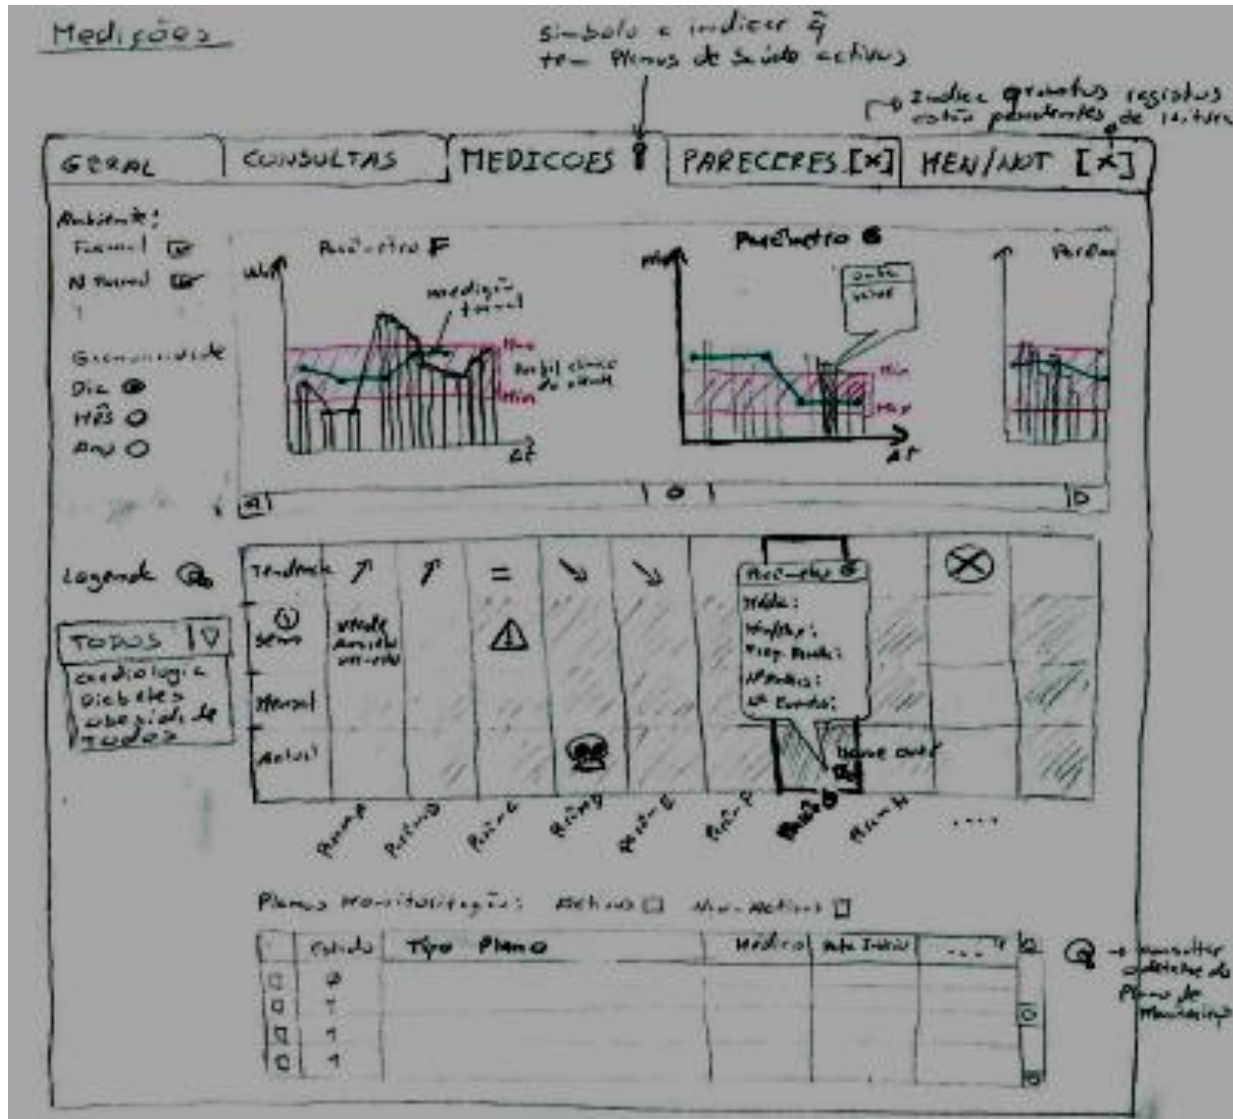 Medições
Símbolo a indicar q̃
tem Planos de Saúde activos
Indica quantos registos
estão pendentes de leitura
GERAL
CONSULTAS
MEDICOES
PARECERES [x]
MEN/NOT [x]
Ambiente:
Formal
N Formal
Granularidade
Dia
Mês
Ano
Parâmetro F
medição
formal
Max
Perfil clínico
do utente
Min
Δt
Parâmetro G
Value
Min
Max
Δt
Legenda
TODOS
Cardiologia
Diabetes
Obesidade
Todos
Tendência
=
Mensal
Actual
Parâmetro G
Média:
Min/Max:
Nº Eventos:
mouse over
Parâm A
Parâm C
Parâm E
Parâm F
Parâm G
Parâm H
....
Planos Monitorização: Activos Non-Activos
Estado
Tipo Plano
Médico
Data Início
...
consultar
o detalhe do
Plano de
Monitorização